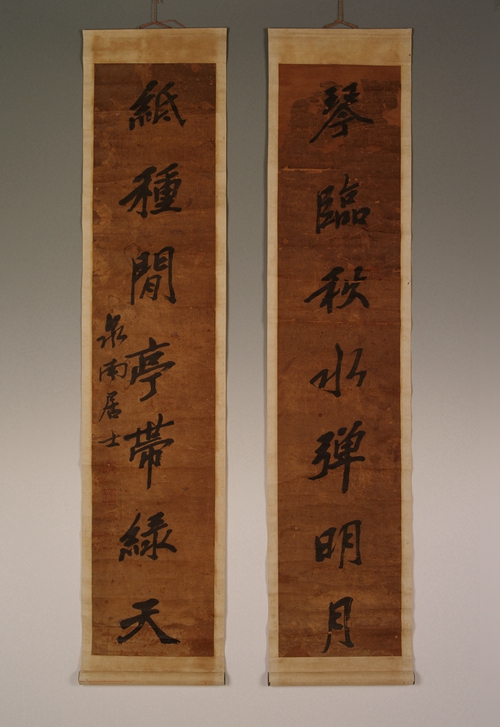 琴臨秋水弾明月
紙種閒亭帯緑天
泉南居士